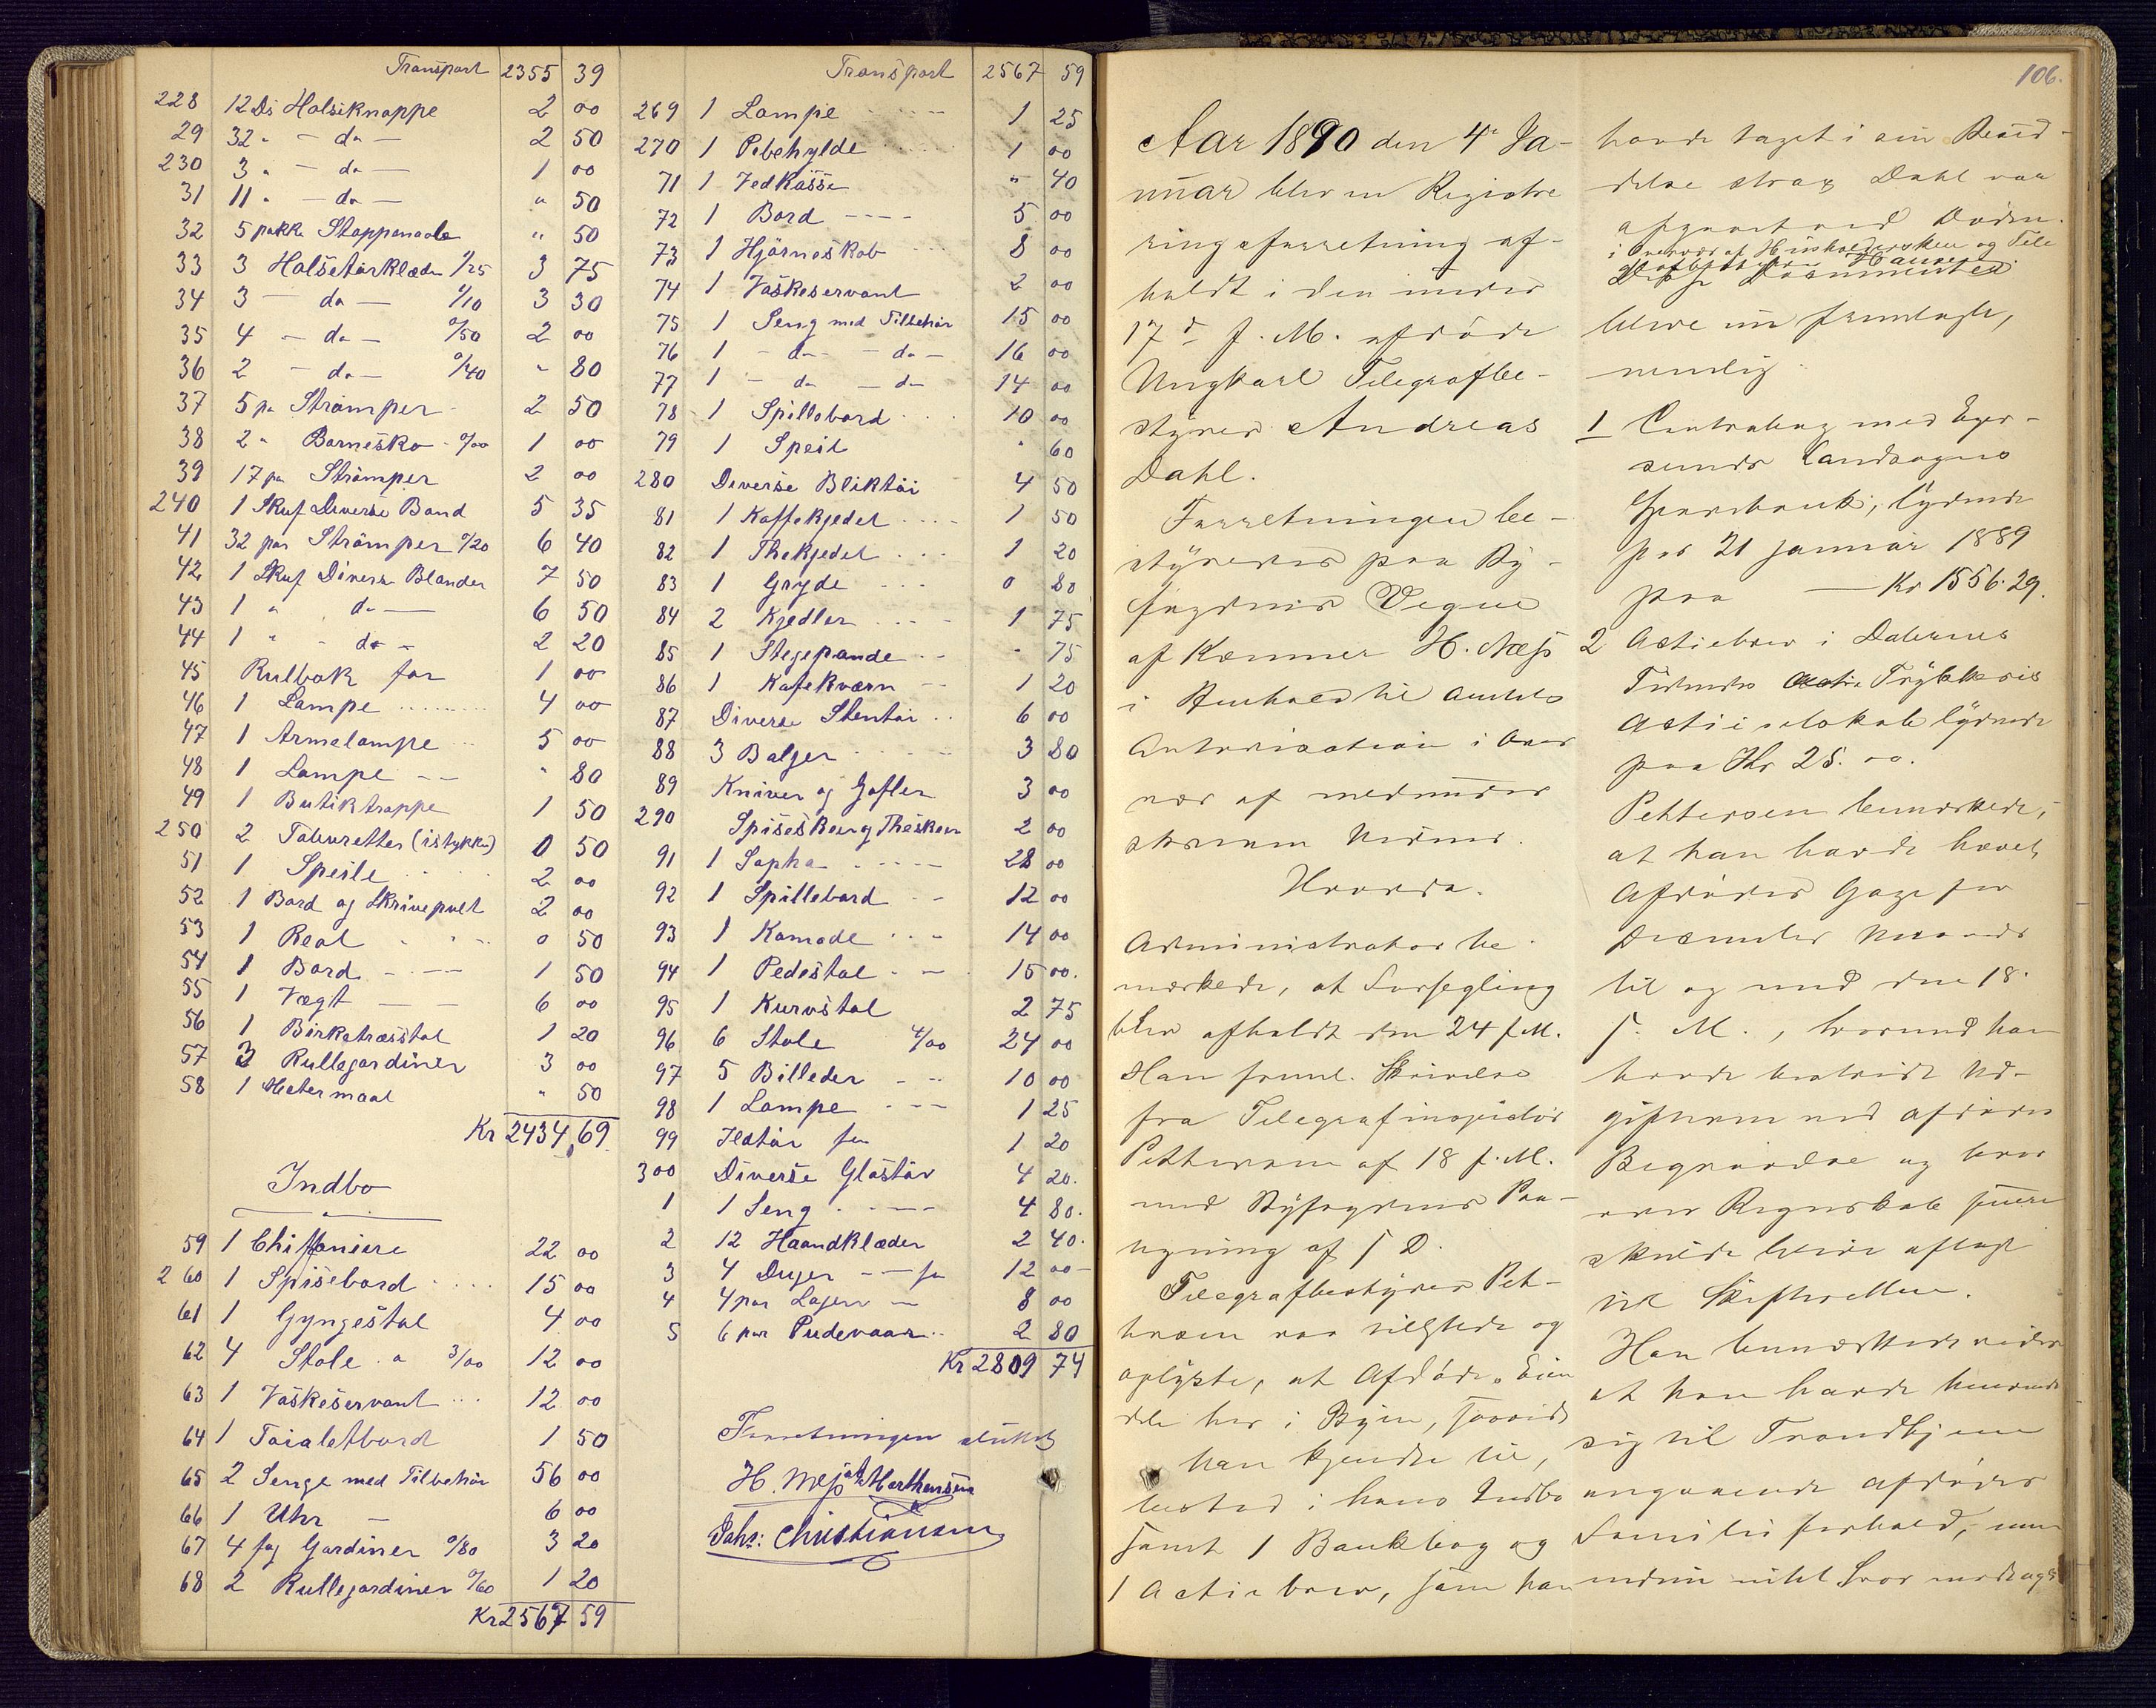 Transport 2355 39
228 12 Ds Halsiknappe 2 00
29 32 " - do - 2 50
230 3 " - do - 1 00
31 11 " - do - " 50
32 5 pakke Stoppenaale " 50
33 3 Halsetørklæder 1/25 3 75
34 3 - do - 1/10 3 30
35 4 - do - 0/50 2 00
36 2 - do - 0/40 " 80
37 5 pa Strømper 2 50
38 2 " Barnesko 1 00
39 17 pa Strømper 2 00
240 1 Skuf Diverse Band 5 35
41 32 par Strømper 0/20 6 40
42 1 Skuf Diverse Blander 7 50
43 1 " do - 6 50
44 1 " - do - 2 20
45 Rulbok for 1 00
46 1 Lampe 4 00
47 1 Armelampe 5 00
48 1 Lampe " 80
49 1 Butiktrappe 1 50
250 2 Taburetter (istykker) 0 50
51 1 Speile 2 00
52 1 Bord og Skrivepult 2 00
53 1 Real 0 50
54 1 Bord 1 50
55 1 Vægt 6 00
56 1 Birketræsstol 1 20
57 3 Rullegardiner 3 00
58 1 Metermaal " 50
Kr 2434,69
Indbo
59 1 Chiffoniere 22 00
260 1 Spisebord 15 00
61 1 Gyngestol 4 00
62 4 Stole a 3/00 12 00
63 1 Vaskeservant 12 00
64 1 Toialetbord 1 50
65 2 Senge med Tilbehør 56 00
66 1 Uhr 6 00
67 4 fag Gardiner 0/80 3 20
68 2 Rullegardiner 0/60 1 20
Kr 2567 59
Transport 2567 59
269 1 Lampe 1 25
270 1 Pibehylde 1 00
71 1 Vedkasse " 40
72 1 Bord 5 00
73 1 Hjørneskab 8 00
74 1 Vaskeservant 2 00
75 1 Seng med Tilbehør 15 00
76 1 - do - - do - 16 00
77 1 - do - do 14 00
78 1 Spillebord 10 00
79 1 Speil " 60
280 Diverse Bliktøi 4 50
81 1 Kaffekjedel 1 50
82 1 Thekjedel 1 20
83 1 Gryde 0 80
84 2 Kjedler 1 75
85 1 Stegepande - 75
86 1 Kafekværn 1 20
87 Diverse Stentøi 6 00
88 3 Baljer 3 80
89 Kniver og Gafler 3 00
290 Spiseskeer og Theskeer 2 00
91 1 Sopha 28 00
92 1 Spillebord 12 00
93 1 Komode 14 00
94 1 Pedestal 15 00.
95 1 Kurvstol 2 75
96 6 Stole 4/00 24 00
97 5 Billeder 10 00
98 1 Lampe 1 25
99 Ildtør 1 20
300 Diverse Glastøi 4 20.
1 1 Seng 4 80.
2 12 Haandklæder 2 40.
3 4 Duger 12 00
4 4 par Lagen 8 00
5 6 par Pudevaar 2 80
Kr 2809 74
Forretningen sluttet
H. Næss Marthensen
Johs: Christiansen
106.
Aar 1890 den 4de Ja-
nuar blev en Registre
ringsforretning af-
holdt i den under
17de f. M. afdøde
Ungkarl Telegrafbe-
styrer Andreas
Dahl.
Forretningen be-
styredes paa By-
fogdens Vegne
af Kæmner H. Næss
i Henhold til Amtets
Autorisation i Over
vær af medunder
skrevne Vidner.
Hvorda.
Administrator be-
mærkede, at Forsegling
blev afholdt den 24 f.M.
Han freml. Skrivelse
fra Telegrafinspektør
Pettersen af 18 f.M.
med Byfogdens Paa-
tegning af s. D.
Telegrafbestyrer Pet-
tersen var tilstede og
oplyste, at Afdødes Eien
dele her i Byen, saavidt
han kjendte til,
bestod i hans Indbo
samt 1 Bankbog og
1 Actiebrev, som han
havde taget i sin Besid-
delse strax Dahl var
afgaaet ved Døden.
i Overvær af Husholdersken og Tele
Disse Documenter
bleve nu fremlagte,
nemlig
1 Contrabog med Eger-
sunds Landsogns
Sparebank, lydende
pr 21 januar 1889
paa — Kr 1556.29.
2 Actiebrev i Dalernes
Tidendes Trykkeris
Actieselskab lydende
paa Kr 25.00.
Pettersen bemærkede,
at han havde hævet
Afdødes Gage for
December Maaned
til og med den 18.
s. M., hvormed han
havde bestridt Ud-
gifterne ved afdødes
Begravelse og hvor
over Regnskab senere
skulde blive aflagt
til Skifteretten.
Han bemærkede videre
at han havde henvendt
sig til Trondhjem
angaaende afdødes
Familieforhold, men
endnu intet Svar modtaget